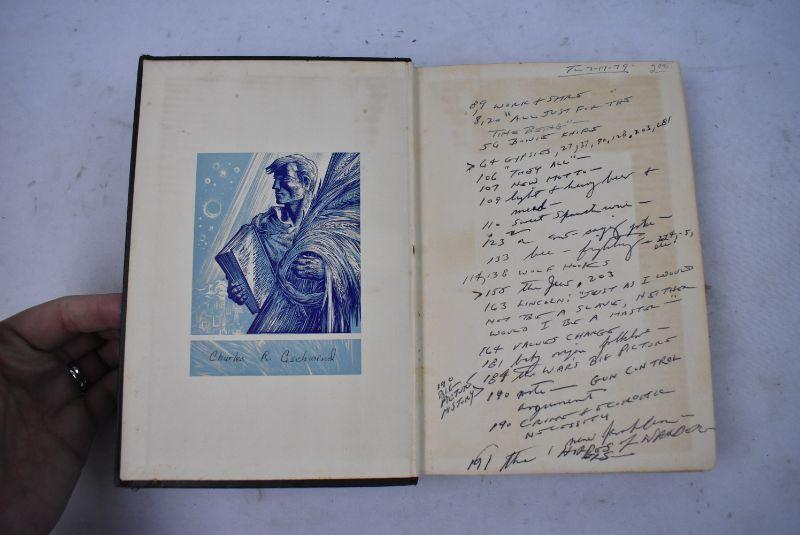 Charles R. Gschwend
7-17-79
89 WORK & SHARE
8,20 "ALL JUST FOR THE
TIME BEING" —
56 BOWIE KNIFE
> 64 GYPSIES, 27, 37, 90, 128, 203, 281
106 "THEY ALL" —
107 NEW MOTTO —
109 light & heavy beer &
mead —
110 sweet Spanish wine —
123 a joke —
133 bee - fighting —
114, 138 WOLF HOOKS
> 155 the Jew, 203
163 LINCOLN: "JUST AS I WOULD
NOT BE A SLAVE, NEITHER
WOULD I BE A MASTER —"
164 VALUES CHANGE
181 folklore —
184 THE WARS BIG PICTURE
190
BIG
PICTURE
HISTORY >
190 note — GUN CONTROL
argument
190 CRIME & ECONOMIC
NECESSITY
191 the new problem —
of